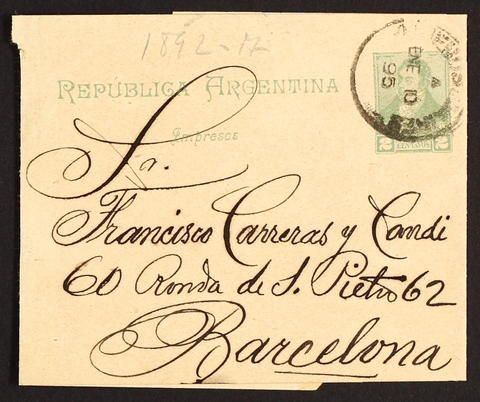 1892-
REPÚBLICA ARGENTINA
Impresos
4
ENE 10
95
2 CENTAVOS 2
Sr.
Francisco Carreras y Candi
60 Ronda de S. Pietro 62
Barcelona